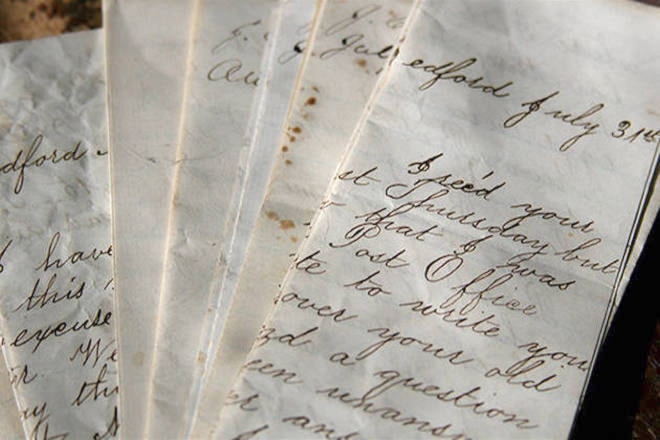 dford -
I have
this
excuse
r. We
y thi
J.
Au
J.
Jul
edford July 31st
I rec'd your
st Thursday but
that I was
Post Office
te to write you
over your old
d a question
een unansw
er an